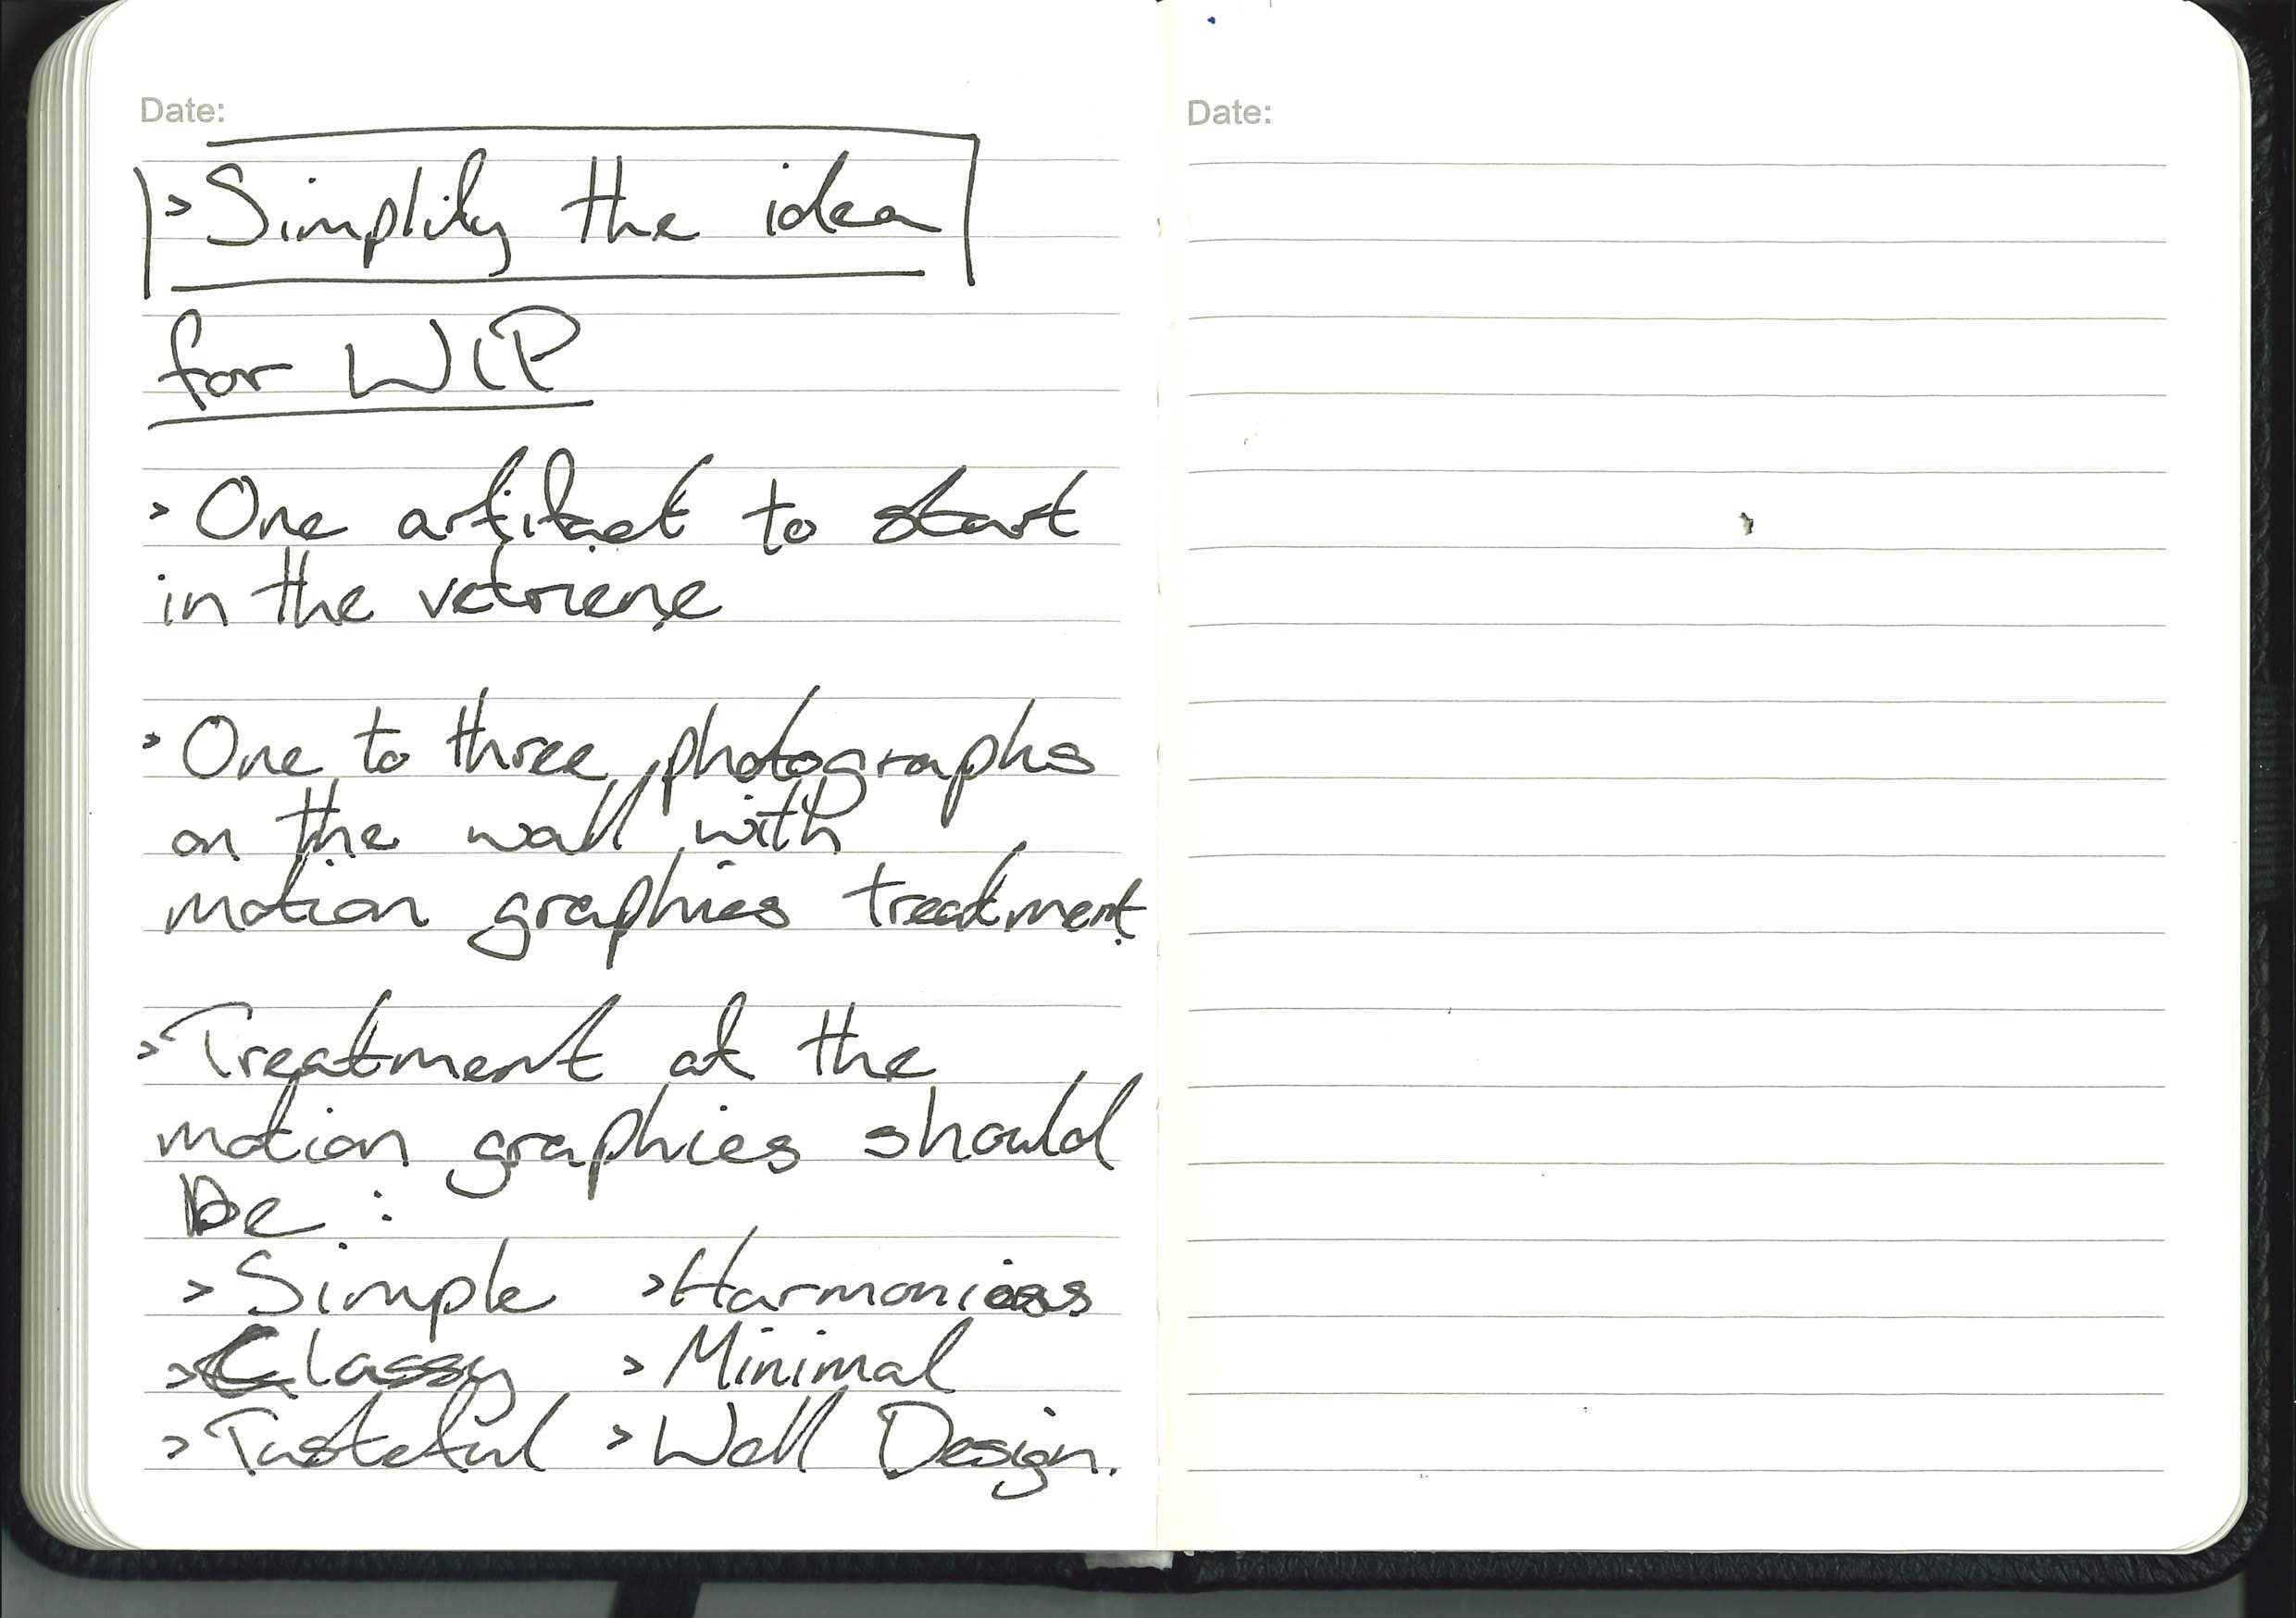 Date:
> Simplify the idea
for WIP
> One artifact to start
in the vetriene
> One to three photographs
on the wall with
motion graphics treatment.
> Treatment at the
motion graphics should
be :
> Simple > Harmonious
> Classy > Minimal
> Tasteful > Well Design.
Date: